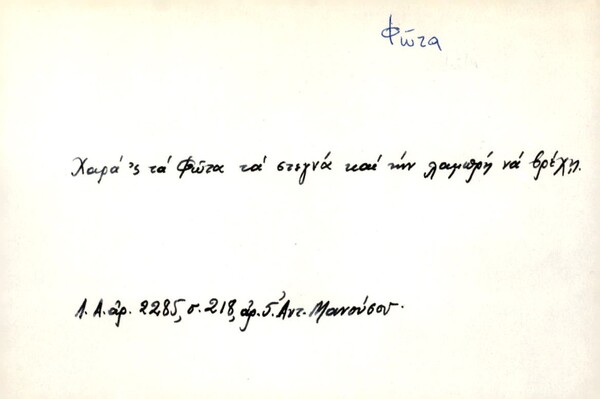 Φῶτα
Χαρά 'ς τά Φῶτα τά στεγνά καί τήν λαμπρή νά βρέχῃ.
Λ.Α. ἀρ. 2285, σ. 218, ἀρ. 5, Ἀντ. Μανούσου.